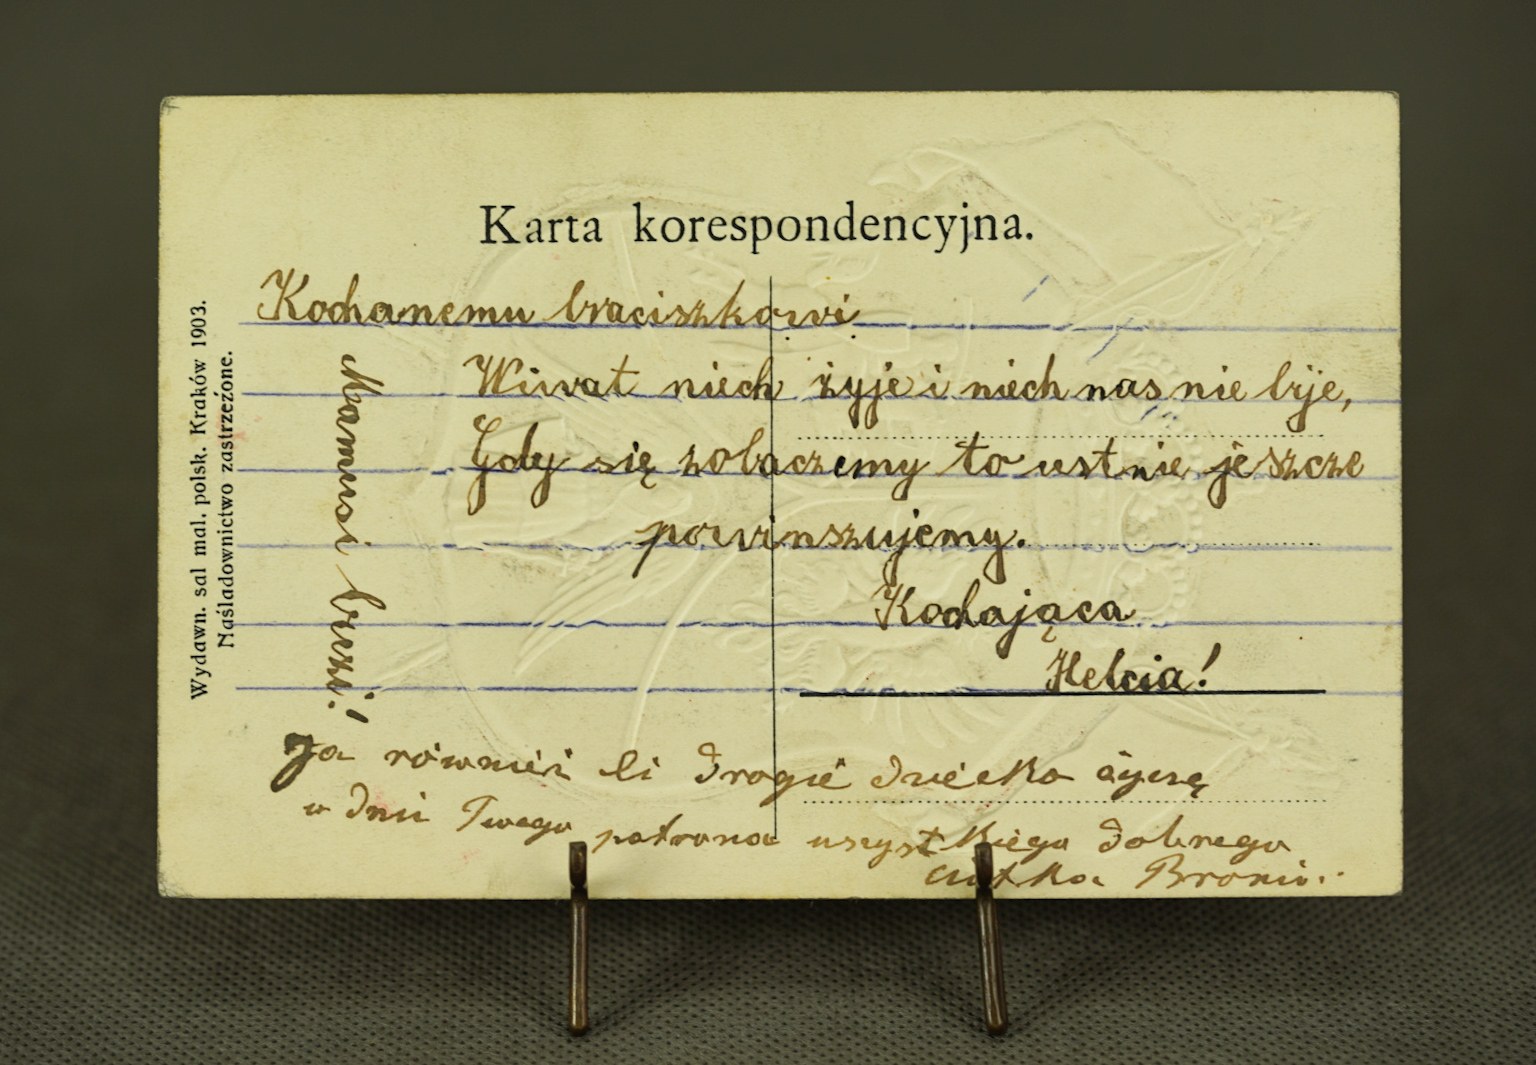 Karta korespondencyjna.
Wydawn. sal mal. polsk. Kraków 1903.
Naśladownictwo zastrzeżone.
Kochanemu braciszkowi
Wiwat niech żyje i niech nas nie bije,
Gdy się zobaczemy to ustnie jeszcze
powinszujemy.
Kochająca
Helcia!
Ja również Ci drogie dziecko życzę
w dniu Twego patrona wszystkiego dobrego
ciotka